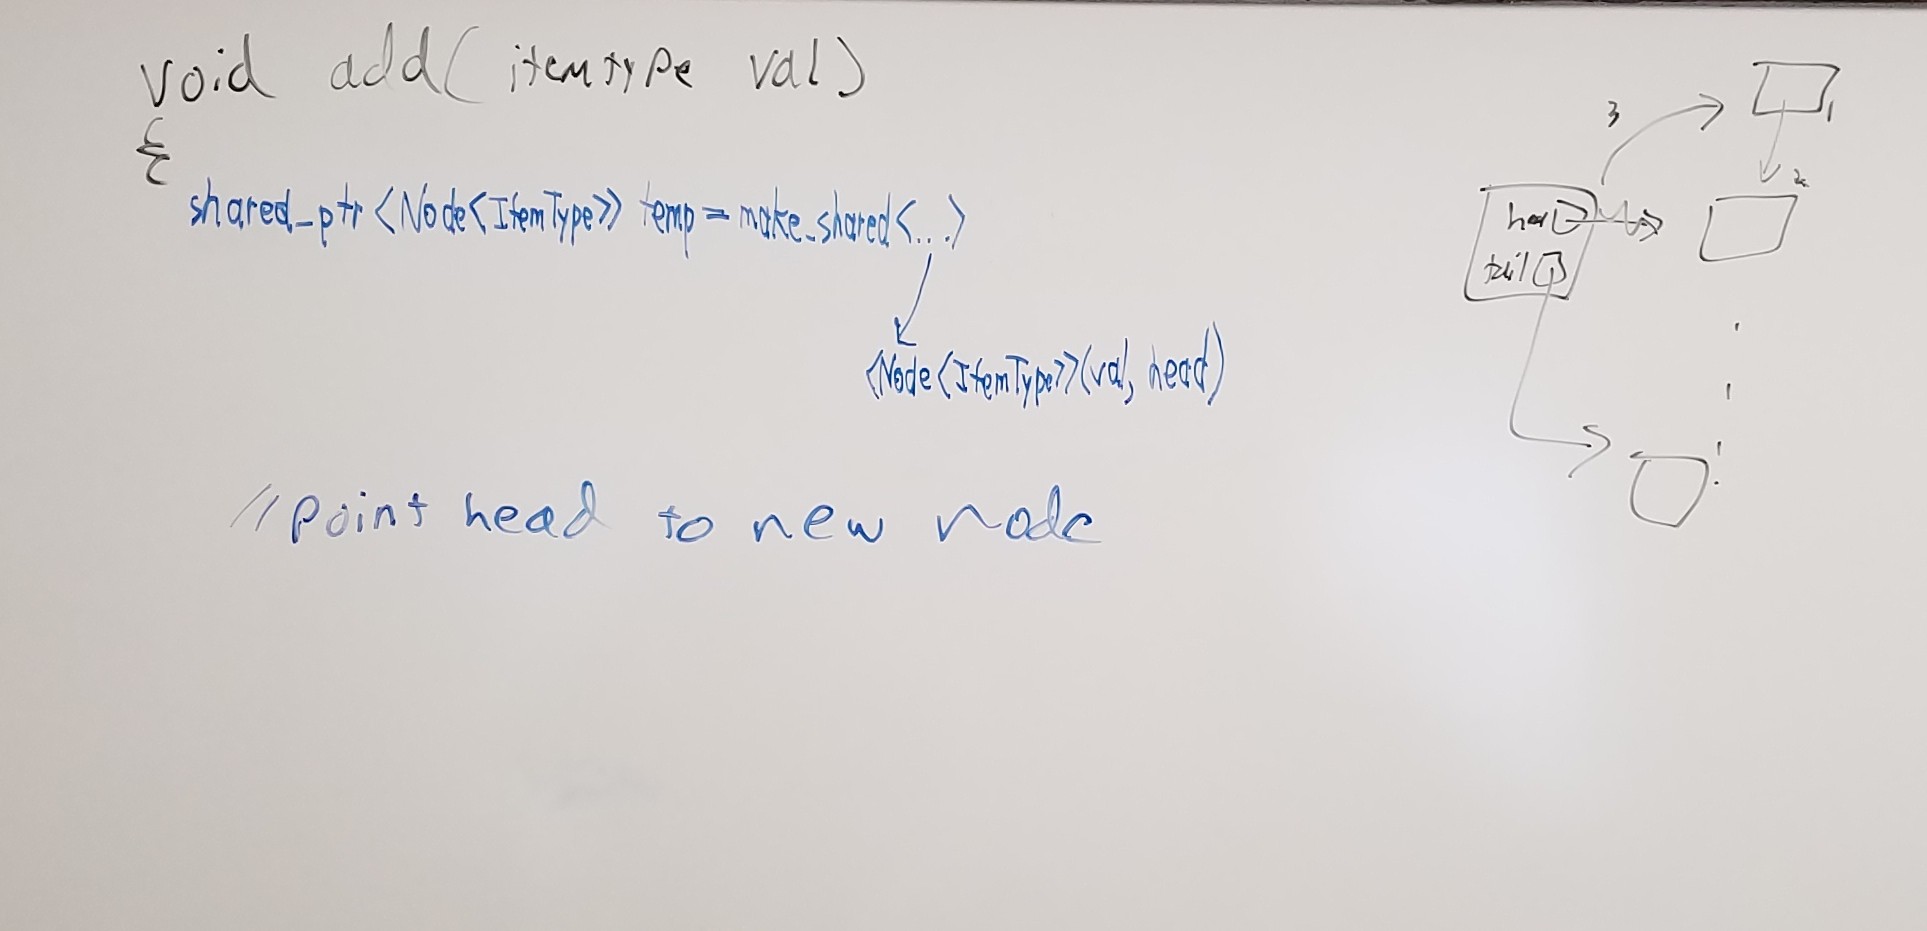 void add( itemtype val)
{
shared_ptr <Node<ItemType>> temp = make_shared<...>
<Node<ItemType>>(val, head)
// point head to new node
3
1
2
head
tail